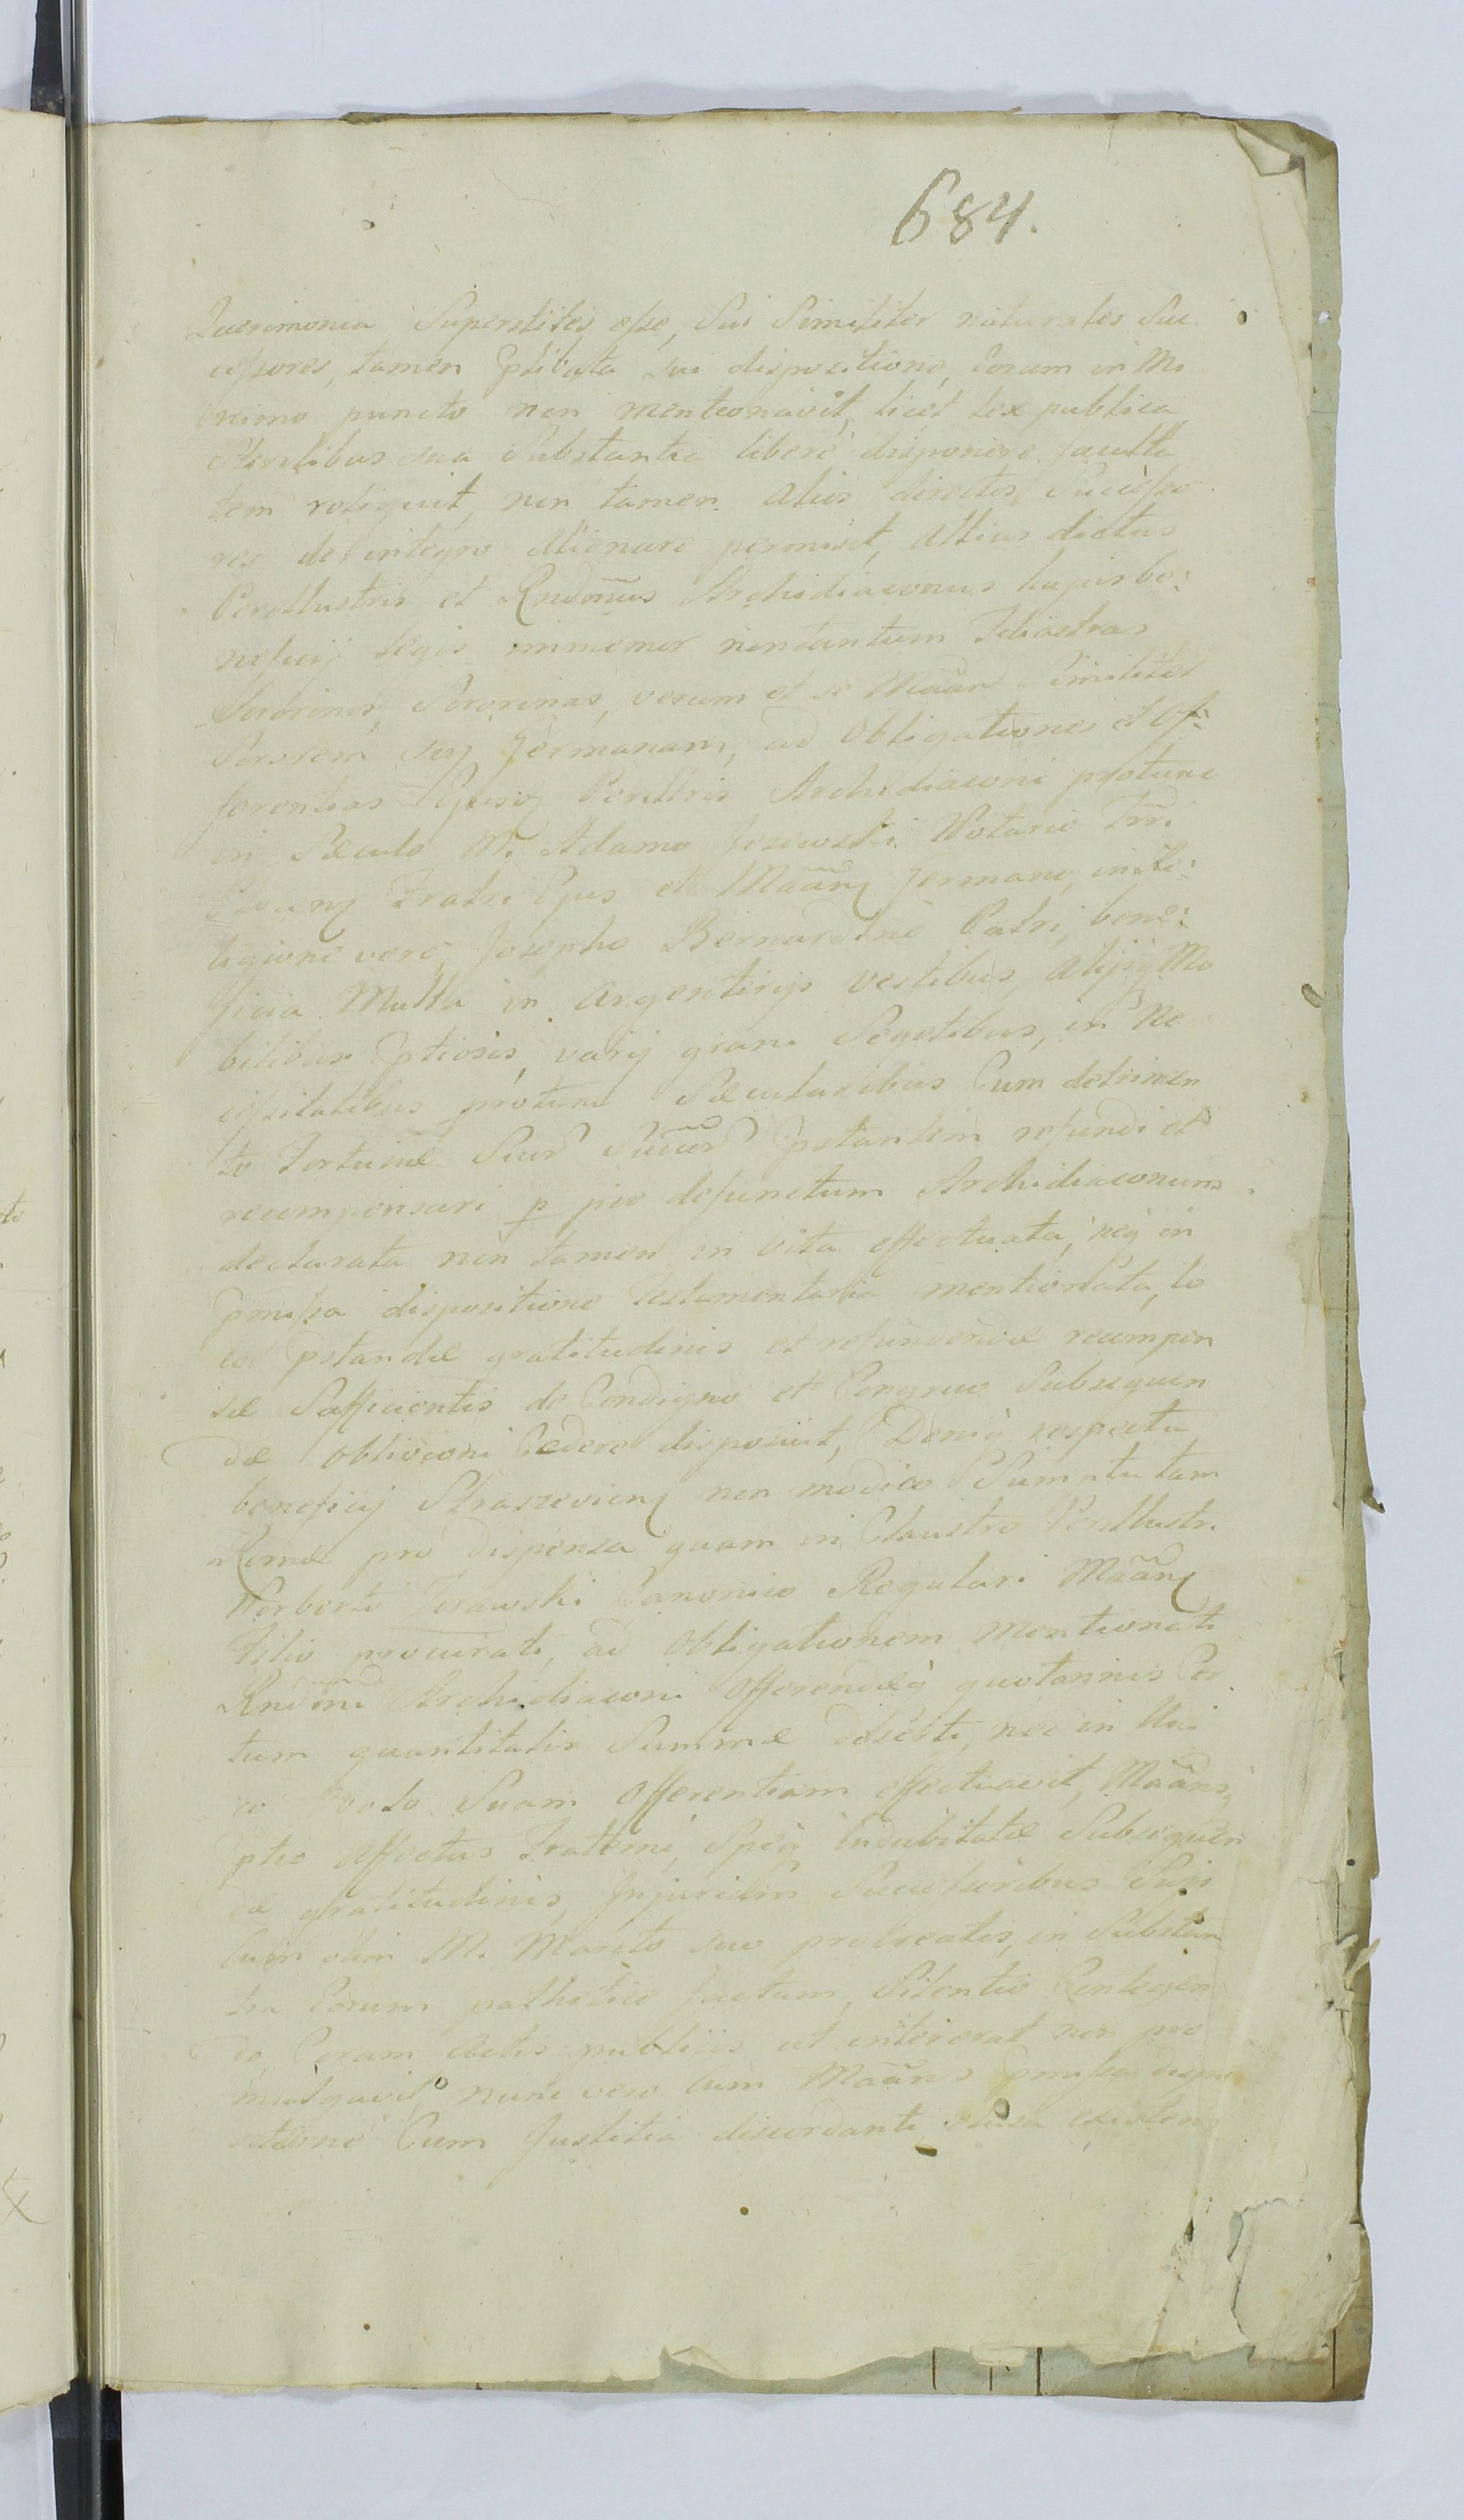 684.
Querimonia Superstites esse, Sui Similiter naturales Suc
cessores, tamen ptibata sui dispositione, Eorum in Mi
nimo puncto non mentionavit, licet lex publica
Sterilibus sua Substantia liberè disponere faculta
tem reliquit, non tamen Alios directos Successo
res de integro Alienare permisit, Altius dictus
Perillustris et Rndmus Archidiaconus hujus be:
neficij legis immemor nontantum Filiastras
Sororinos, Sororinas, verum et se Maan Similiter
Sororem suj Germanam, ad Obligationes et Of:
ferentias Ejusq Perillris Archidiaconi protunc
in Sæculo M. Adamo Jerewski Notario Trri
Fratri Ejus et Maanq Germano, in Re:
ligione vero, Josepho Bernardino Patri, bene:
ficia Multa in Argenterijs vestibus, Alijsq Mo
bilibus ptiosis, varij grani Segetibus, in Ne
cessitatibus protunc Sæcularibus Cum detrimen
to Fortunæ Suor Succor pstantem refundi et
recompensari p pie defunctum Archidiaconum
declarata non tamen in vita effectuata, neq in
pmissa dispositione Testamentaria mentionata, lo
co pstandæ gratitudinis et refundendæ recompen
sæ Sufficientis de Condigno et Congruo Subsequen
dæ oblivioni Cedere disposuit, Deniq respectu
beneficij Straszevienq non modico Sumptu tam
Romæ pro dispensa quam in Claustro Perillustri
Norberto Jerawski Canonico Regulari Maanq
Filio procurati, ad Obligationem Mentionati
Rndmi Archidiaconi Offerendæq quotannis Cer
tum quantitatis Summæ defecti, nec in Uni
co Obolo Suam Offerentiam effectuavit, Maansq
ptio Affectus Fraterni, Speq Indubitatæ Subsequen
dæ gratitudinis, Injuriam Successoribus Suis
Cum olim M. Marito suo procreatis, in Substan
tia Eorum pathetice factam, Silentio Contegen
do Coram Actis publicis ut intererat non pro
mulgavit, nunc vero Cum Maans pmissa dispo
sitione Cum Justitia discordanti existens